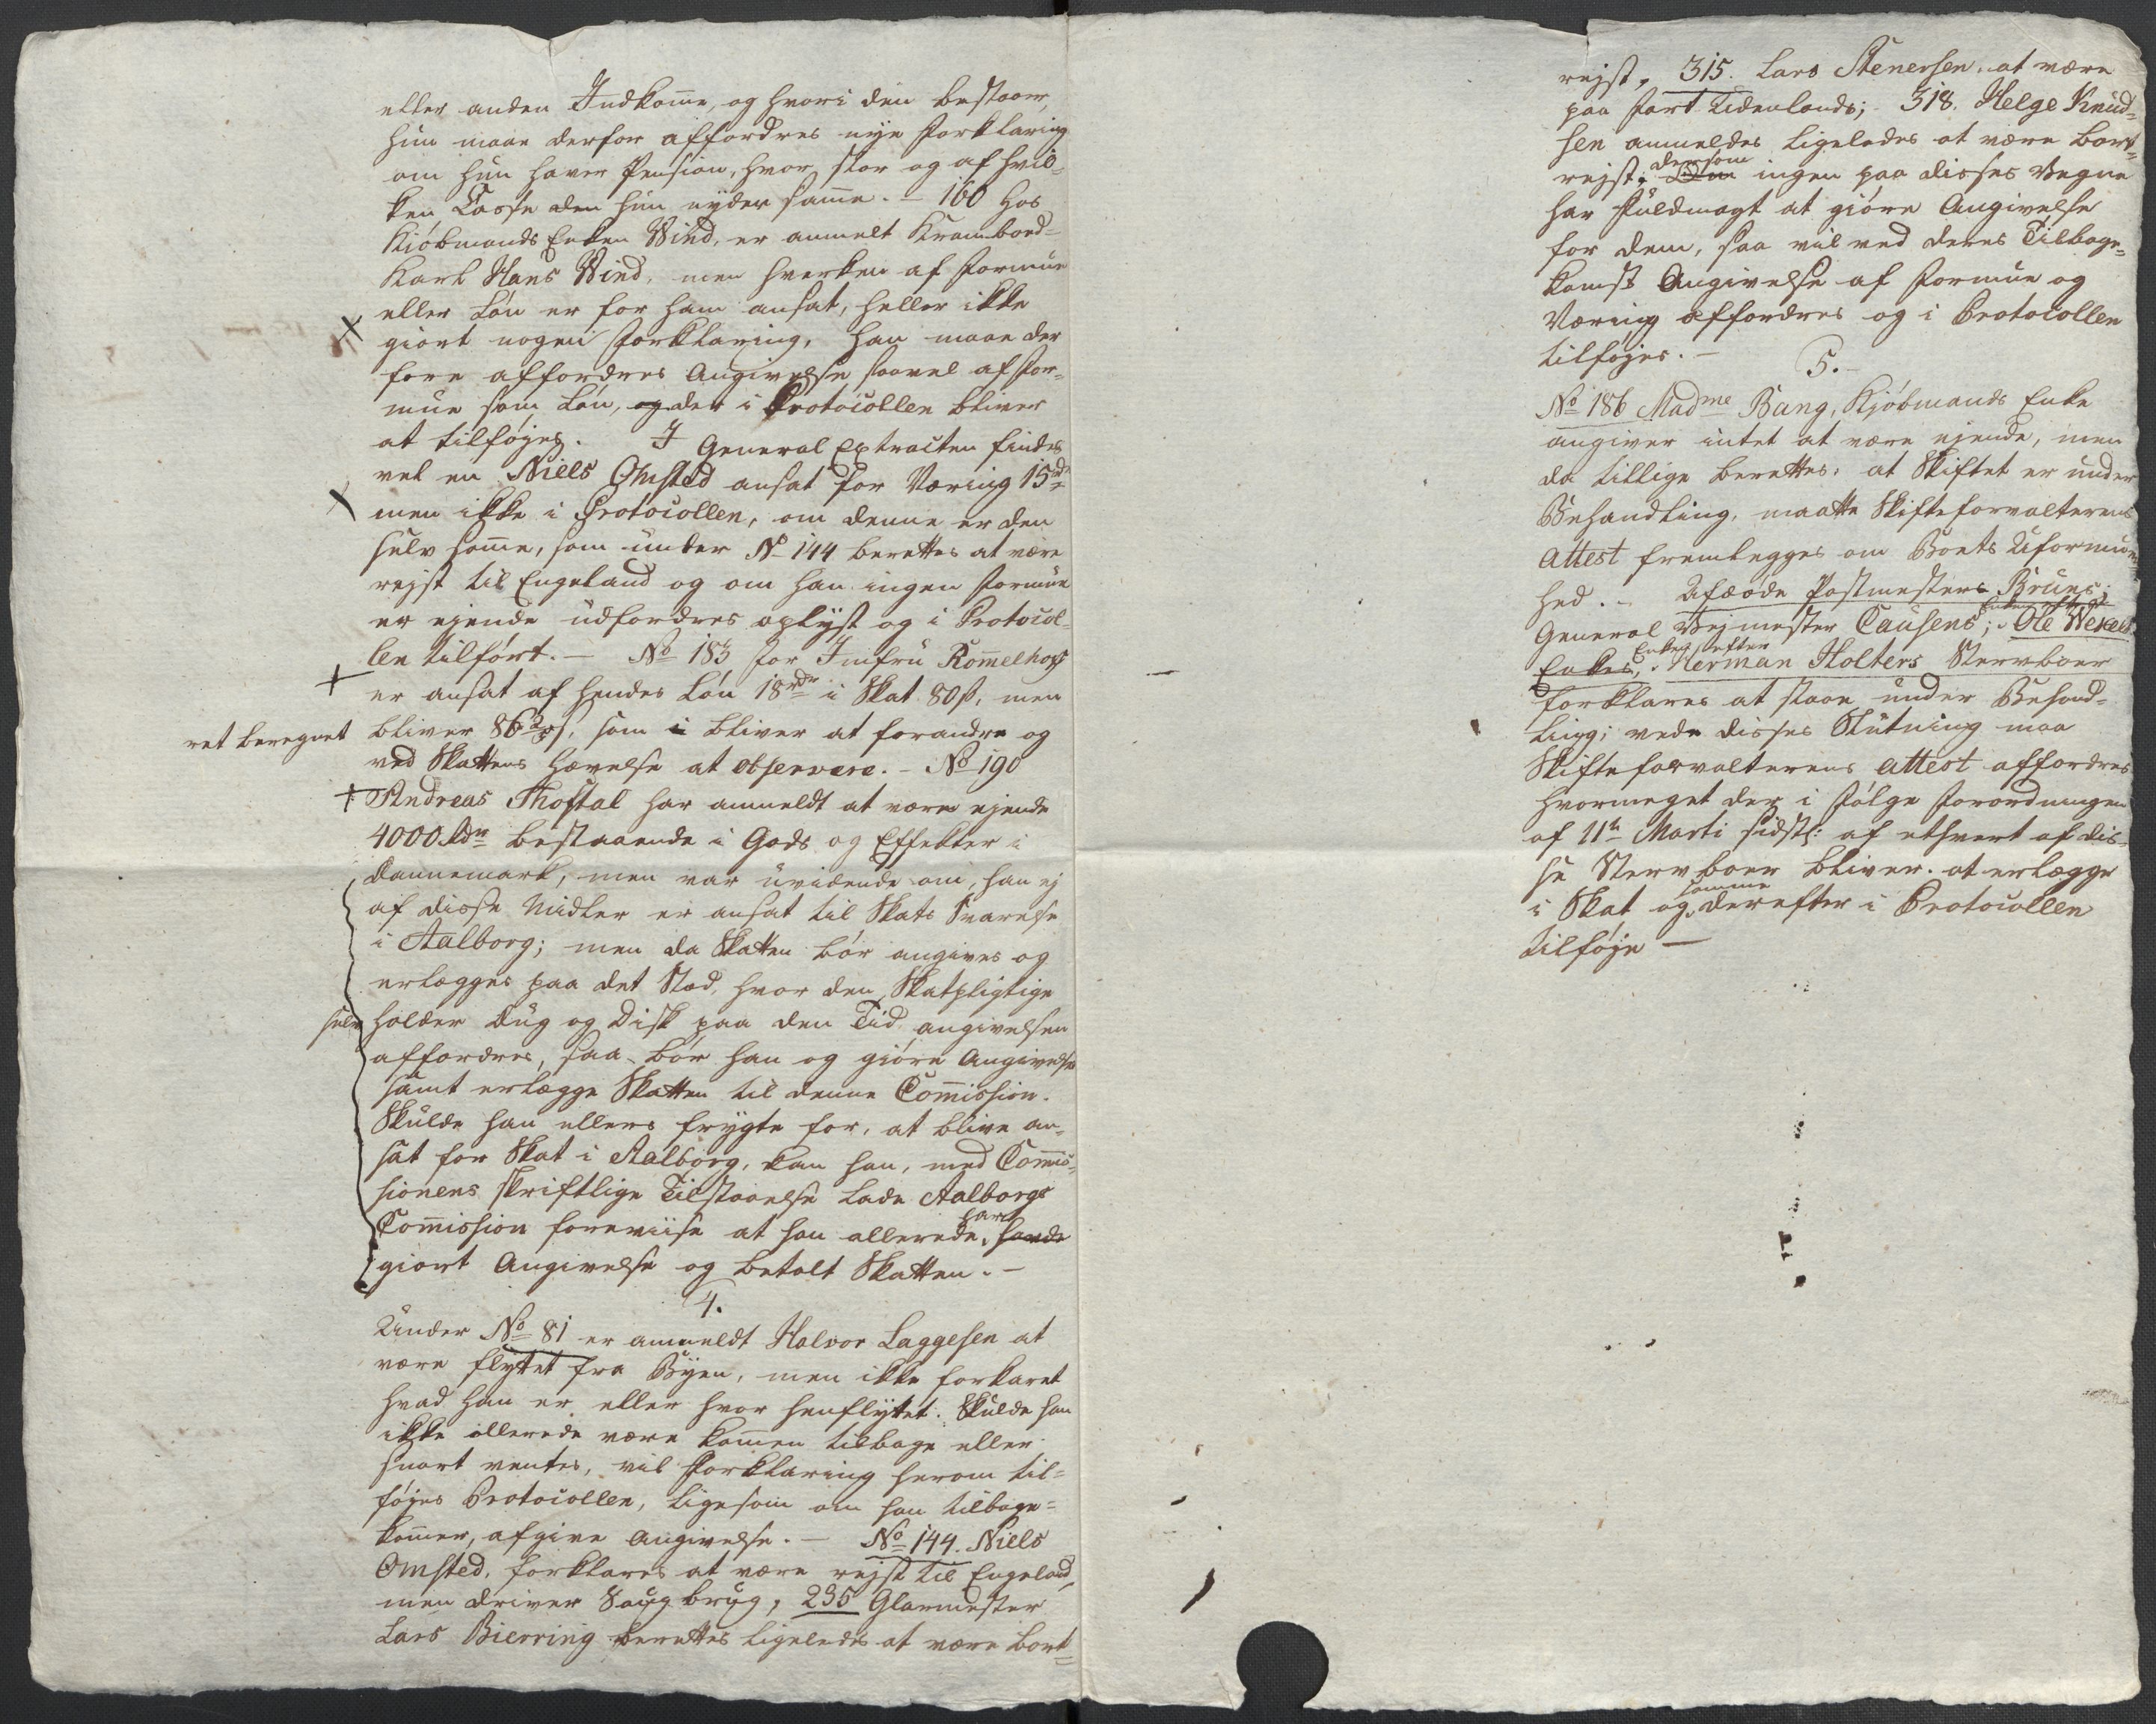 eller anden Indkome, og hvori den bestaaer,
hun maae derfor affordres nye Forklaring
om hun haver Pension, hvor stor og af hvil-
ken Casse den hun nyder same. - 160 hos
Kiøbmands Enken Wind, er anmelt Krambod-
Karl Hans Wind, men hverken af Formue
eller Løn er for ham ansat, heller ikke
giort nogen Forklaring, han maae der
fore affordres Angivelse saavel af For-
mue som Løn, og der i Protocollen bliver
at tilføjes. I General Extracten findes
vel en Niels Omsted ansat for Næring 15rdr
men ikke i Protocollen, om denne er den
selv same, som under No 144 berettes at være
rejst til Engeland og om han ingen Formue
er ejende udfordres oplyst og i Protocol-
len tilført. - No 183 for Jmfru Romelhoff
er ansat af hendes Løn 18rdr i Skat 80 s, men
ret beregnet bliver 86 2/5 s, som i bliver at forandre og
ved Skattens Hævelse at observere. - No 190
Andreas Thostal har anmeldt at være ejende
4000 Rdr bestaaende i Gods og Effekter i
Dannemark, men var uvidende om, han ej
af disse Midler er ansat til Skats Svarelse
i Aalborg; men da Skatten bør angives og
erlægges paa det Sted, hvor den Skatpligtige
selv holder Dug og Disk paa den Tid angivelsen
affordres, saa bør han og giøre Angivelse
samt erlægge Skatten til denne Comission.
Skulde han ellers frygte for, at blive an-
sat for Skat i Aalborg, kan han, med Comis-
sionens skriftlige Tilstaaelse lade Aalborgs
Comission foreviise at han allerede har havde
giort Angivelse og betalt Skatten. -
4.
Under No 81 er anmeldt Halvor Laggesen at
være flyttet fra Byen, men ikke forklaret
hvad han er eller hvor henflyttet. Skulde han
ikke allerede være kommen tilbage eller
snart ventes, vil Forklaring herom til-
føjes Protocollen, ligesom om han tilbage-
kommer, afgive Angivelse. - No 144. Niels
Omsted, forklares at være rejst til Engeland,
men driver Saugbrug, 235 Glarmester
Lars Bierring berettes ligeledes at være bort-
rejst, 315. Lars Stenersen at være
paa Fart udenlands; 318. Helge Knud-
sen anmeldes ligeledes at være bort-
rejst; dersom ingen paa disses Vegne
har Fuldmagt at giøre Angivelse
for dem, saa vil ved deres Tilbage-
komst Angivelse af Formue og
Næring affordres og i Protocollen
tilføjes. -
5. -
No 186 Madme Bang, Kjøbmands Enke
angiver intet at være ejende, men
da tillige berettes, at Skiftet er under
Behandling, maatte Skifteforvalterens
Attest fremlegges om Boets Uformuen-
hed. - Afdøde Postmester Bruns;
General Vejmester Causens; Enken efter Ole Wexels
Enkes; Enken efter Herman Holters Stervboer
forklares at staae under Behand-
ling; vede disses Slutning maa
Skifteforvalterens attest affordres
hvormeget der i Følge Forordningen
af 11te Marti sidstl: af ethvert af dis-
se Stervboer bliver at erlægge
i Skat og samme derefter i Protocollen
tilføje -